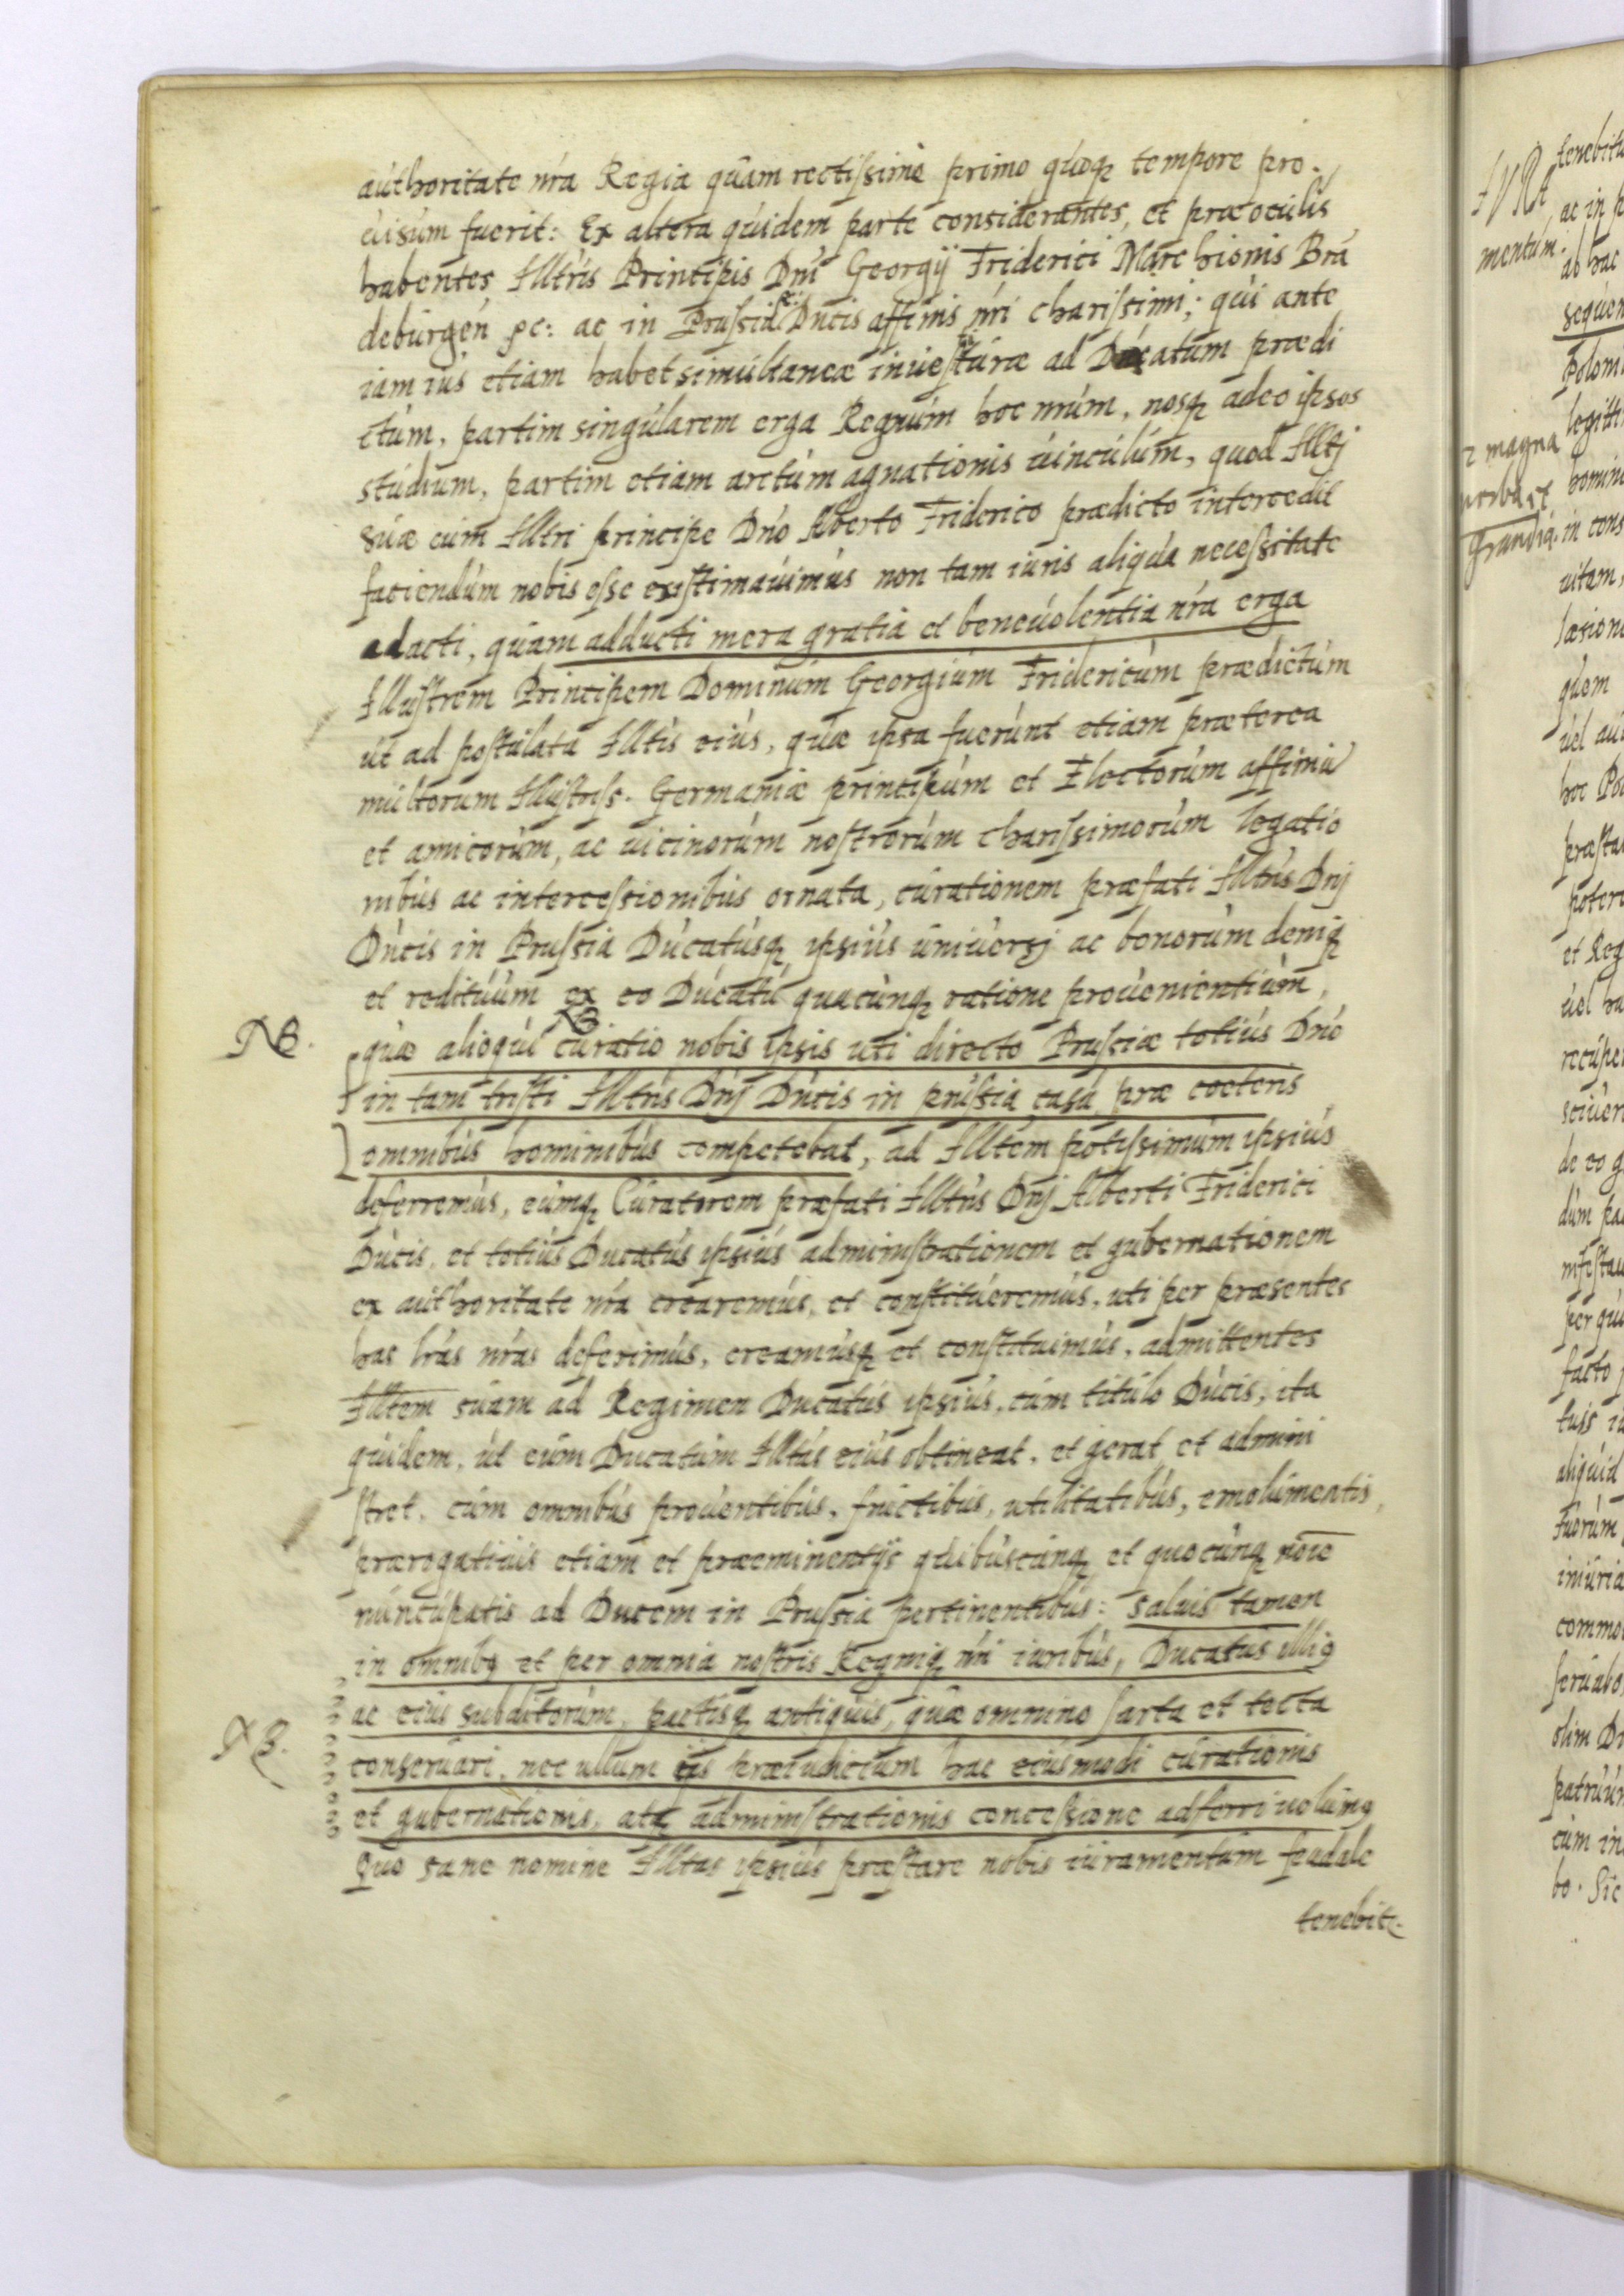 authoritate nrá Regia quam rectissime primo quoq tempore pro-
uisum fuerit: Ex altera quidem parte considerantes, et præ oculis
habentes Illtris Principis Dni Georgij Friderici Marchionis Brā
deburgen &c: ac in Prussia Ducis affinis nri charissimi; qui ante
iam ius etiam habet simultaneæ inuestituræ ad Ducatum prædi
ctum, partim singularem erga Regnum hoc nrum, nosq adeo ipsos
studium, partim etiam arctum agnationis uinculum, quod Illtj
suæ cum Illtri principe Dno Alberto Friderico prædicto intercedit
faciendum nobis esse existimauimus non tam iuris aliqua necessitate
adacti, quam adducti mera gratia et beneuolentia nra erga
Illustrem Principem Dominum Georgium Fridericum prædictum
ut ad postulata Illtis eius, quæ ipsa fuerunt etiam præterea
multorum Illustriss. Germaniæ principum et Electorum affiniū
et amicorum, ac uicinorum nostrorum charissimorum legatio
nibus ac intercessionibus ornata, curationem præfati Illtris Dnj
Ducis in Prussia Ducatusq ipsius uniuersj ac bonorum deniq
et redituum ex eo Ducatu quacunq ratione prouenientium,
NB.
quæ alioqui curatio nobis ipsis uti directo Prussiæ totius Dno
in tam tristi Illtris Dnj Ducis in prussia casu præ coeteris
omnibus hominibus competebat, ad Illtem potissimum ipsius
deferremus, eumq Curatorem præfati Illtris Dnj Alberti Friderici
Ducis, et totius Ducatus ipsius administrationem et gubernationem
ex authoritate nra crearemus, et constitueremus, uti per præsentes
has lras nras deferimus, creamusq et constituimus, admittentes
Illtem suam ad Regimen Ducatus ipsius, cum titulo Ducis, ita
quidem, ut eum Ducatum Illtas eius obtineat, et gerat et admini
stret, cum omnibus prouentibus, fructibus, utilitatibus, emolumentis,
prærogatiuis etiam et præeminentijs quibuscunq et quocunq noie
nuncupatis ad Ducem in Prussia pertinentibus: saluis tamen
in omnibq et per omnia nostris Regniq nri iuribus, Ducatus illiq
ac eius subditorum, pactisq antiquis, quæ omnino sarta et tecta
NB.
conseruari, nec ullum ijs præiudicium hac eiusmodi curationis
et gubernationis, atq administrationis concessione adferri uolumq
Quo sane nomine Illtas ipsius præstare nobis iuramentum feudale
tenebit.